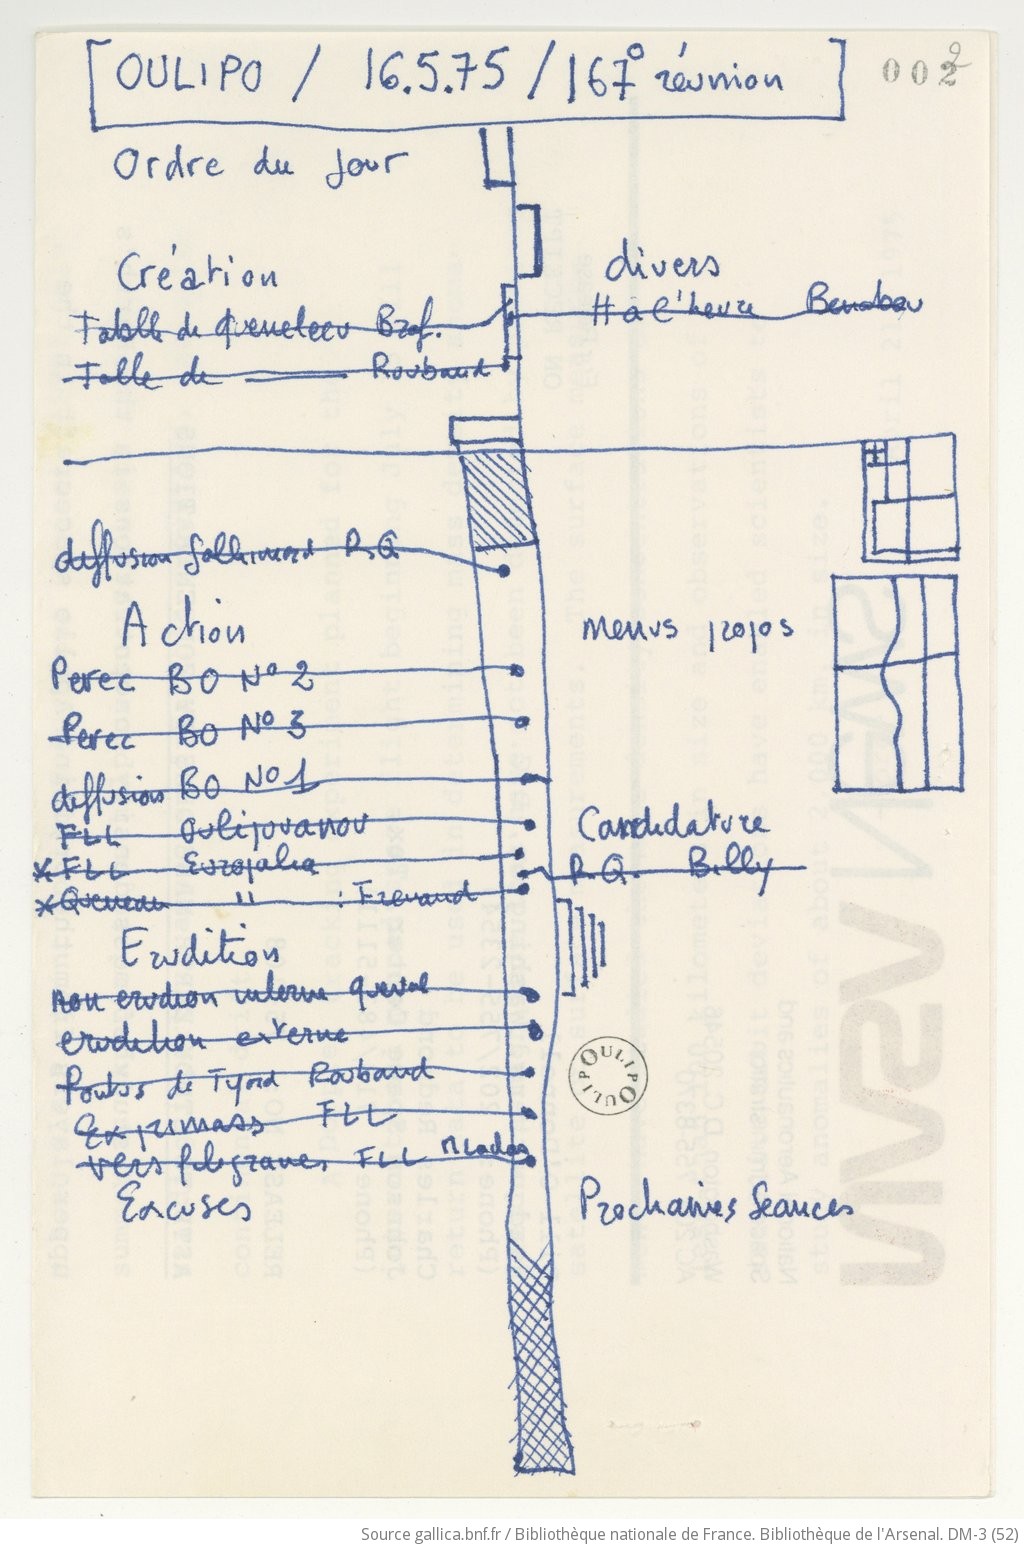 OULIPO / 16.5.75 / 167° réunion
002
Ordre du Jour
Création
divers
Table de Queneleev Braf.
H à l'heure Benabou
Table de Roubaud
diffusion Gallimard R.Q
Action
menus propos
Perec BO N° 2
Perec BO N° 3
diffusion BO N° 1
FLL Oulipovanov
Candidature
x FLL Europalia
R.Q. Billy
x Queneau " :
Erudition
non erudion interne Queval
erudition externe
OULIPO OULIPO
Pontus de Tyard Roubaud
FLL
vers filigranes FLL
Excuses
Prochaines Seances
NASA
Source gallica.bnf.fr / Bibliothèque nationale de France. Bibliothèque de l'Arsenal. DM-3 (52)